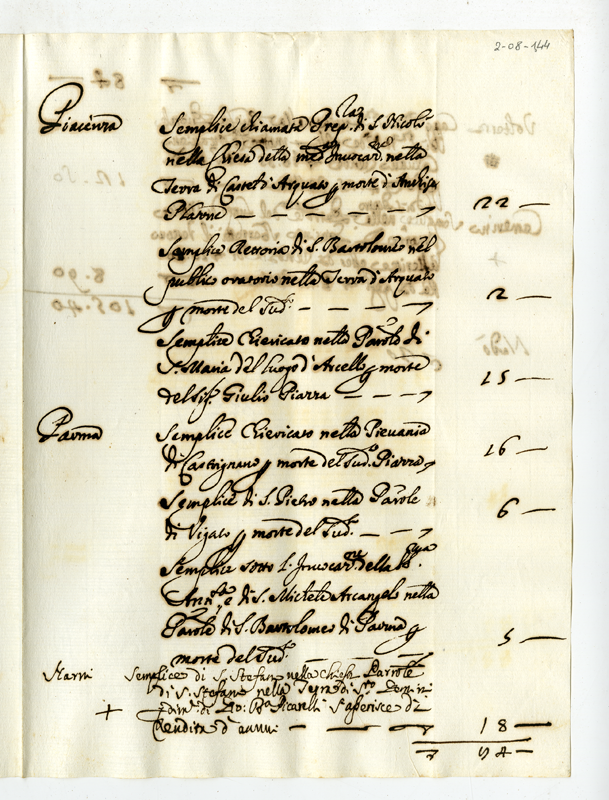 2-08-144
Piacenza Semplice chiamata Prep.ra di S. Nicolò
nella Chiesa della med.ma Invocaz.ne nella
Terra di Castel d'Arquato p morte d'
22 —
Semplice Rettoria di S. Bartolomeo nel
publico oratorio nella Terra d'Arquato
p morte del Sud.o 2 —
Semplice Chiericato nella Parole di
S. Maria del luogo d'Arcello p morte
del Sig. Giulio Piazza 15 —
Parma Semplice Chiericato nella Pievania
di Castrignano p morte del Sud.o Piazza 16 —
Semplice di S. Pietro nella Parole
di Vigato p morte del Sud.o 6 —
Semplice sotto l'Invocaz.ne della SS.ma
Ann.ta e di S. Michele Arcangelo nella
Parole di S. Bartolomeo di Parma p
morte del Sud.o 5 —
Semplice di S. Stefano nella Chiesa Parrole
di S. Stefano nella Terra di S.to
+ di Gio: B.a s'asserisce di
Rendita d'annui 18 —